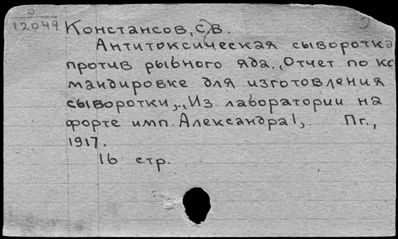 Э
12049
Константсов, С.В.
Антитоксическая сыворотка
против рыбного яда, „Отчет по ко
мандировке для изготовления
сыворотки", „Из лаборатории на
форте имп. Александра I„. Пг.,
1917.
16 стр.